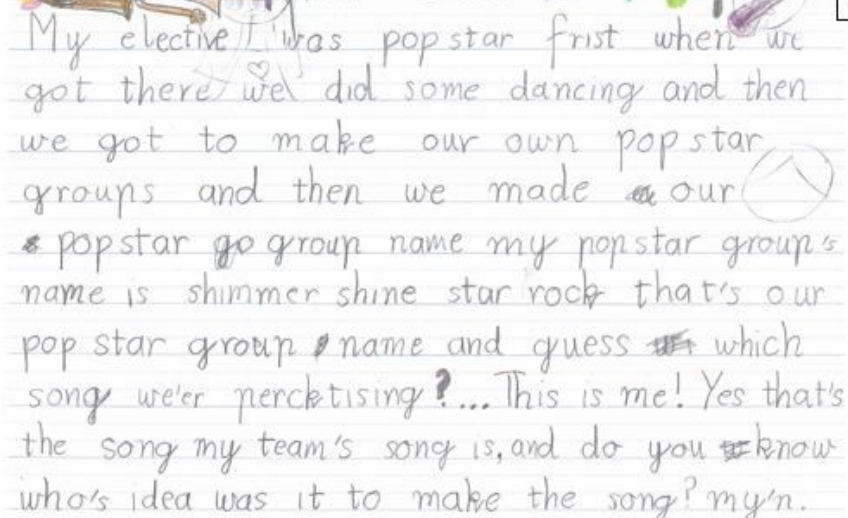 My elective was pop star frist when we
got there we did some dancing and then
we got to make our own pop star
groups and then we made our
pop star go group name my pop star group's
name is shimmer shine star rock that's our
pop star group name and guess which
song we'er percktising?... This is me! Yes that's
the song my team's song is, and do you know
who's idea was it to make the song? my'n.